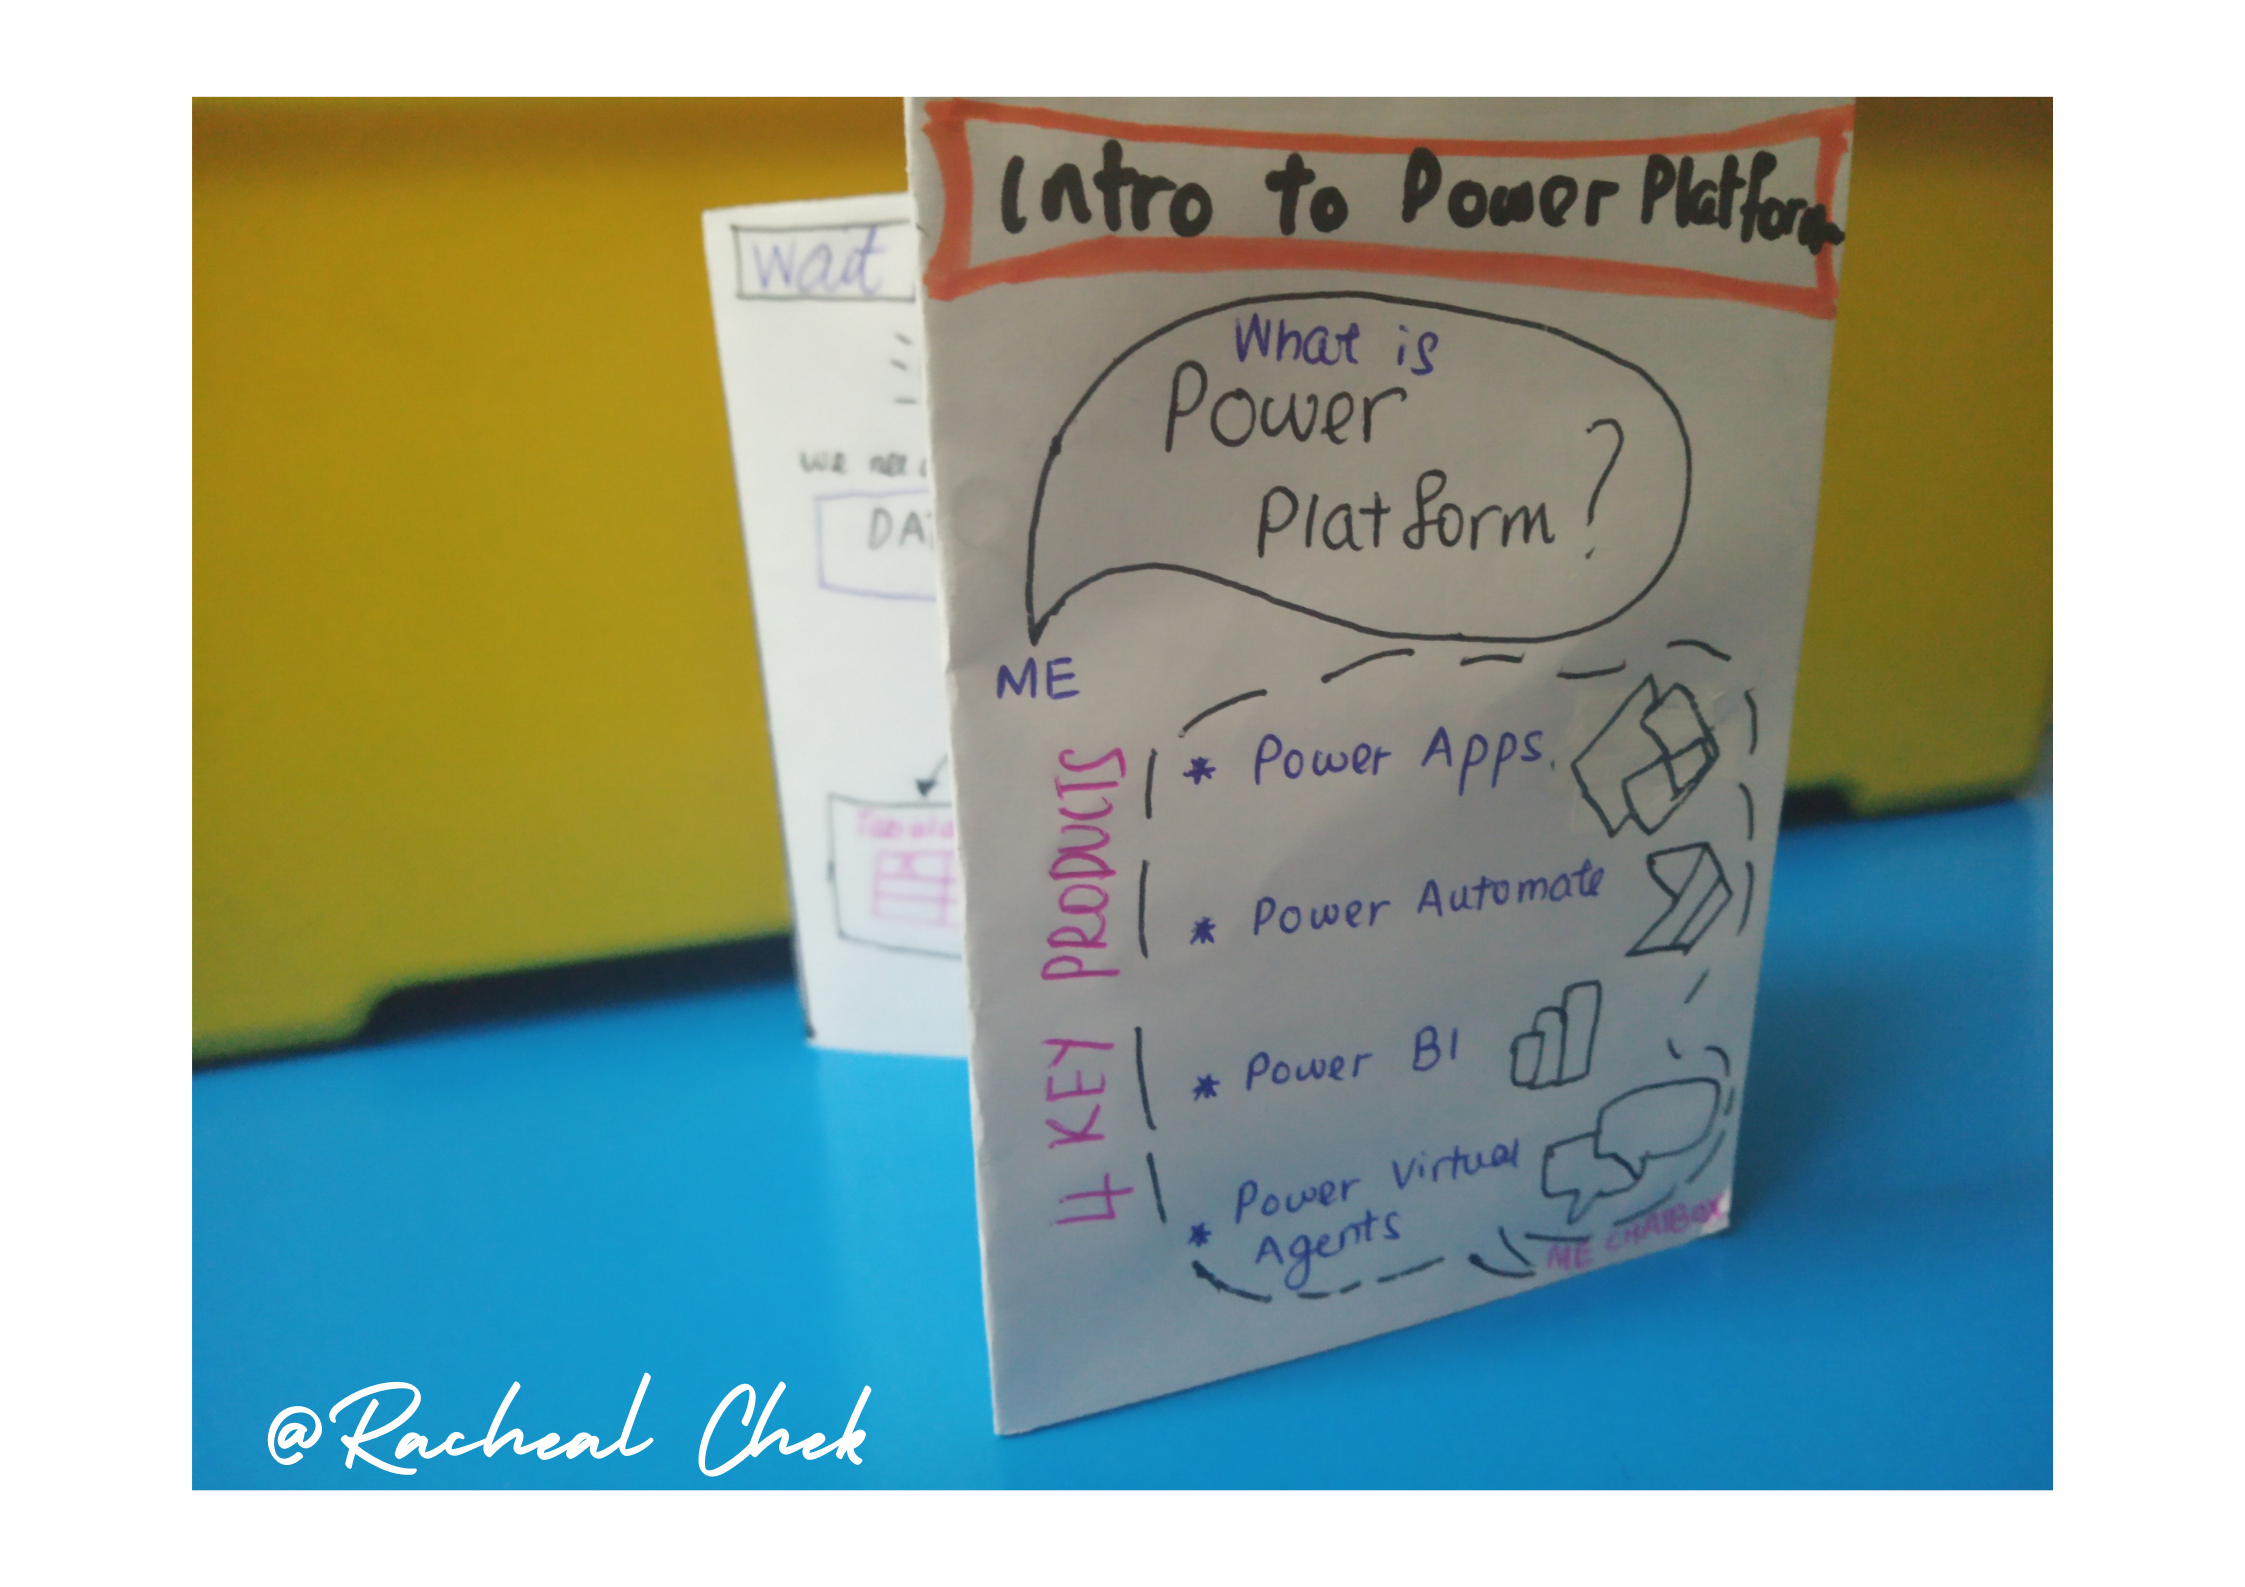 Intro to Power Platform
What is
Power
Platform ?
ME
4 KEY PRODUCTS
* Power Apps.
* Power Automate
* Power BI
* Power Virtual
Agents
ME CHATBOX
Wait
we
@Racheal Chek